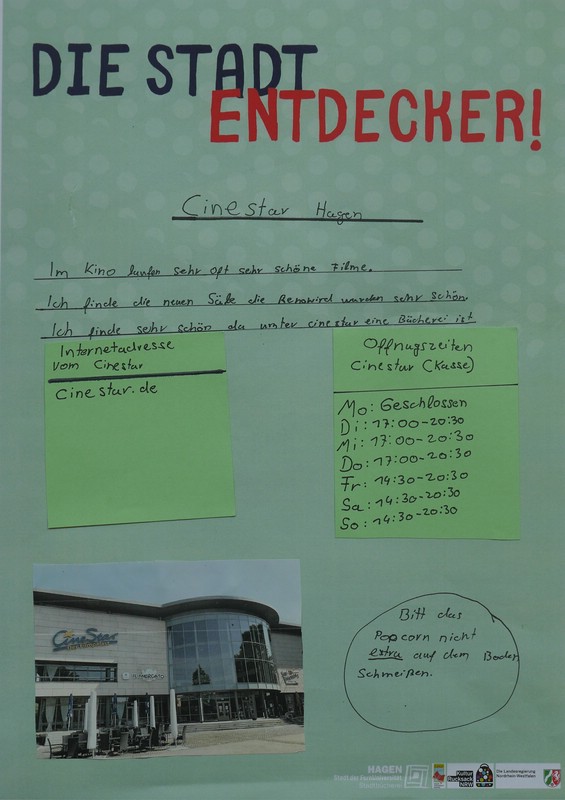 DIE STADT
ENTDECKER!
Cinestar Hagen
Im Kino laufen sehr oft sehr schöne Filme.
Ich finde die neuen Süße die wurden sehr schön
Ich finde seihr schön da unter cinestar eine Bücherei ist
Internetadresse
vom Cinestar
Cinestar.de
Offnugszeiten
Cinestar (Kasse)
Mo: Geschlossen
Di: 17:00-20:30
Mi: 17:00-20:30
Do: 17:00-20:30
Fr: 14:30-20:30
Sa: 14:30-20:30
So: 14:30-20:30
CineStar
Bitt das
Popcorn nicht
extra auf dem Boden
Schmeißen.
HAGEN
Stadt der FernUniversität
Stadtbücherei
Kultur
Rucksack
NRW
Die Landesregierung
Nordrhein-Westfalen